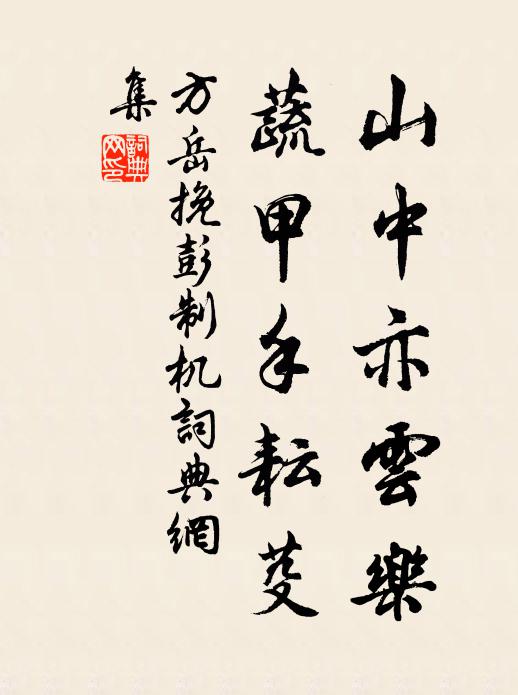 山中亦雲樂
蔬甲手耘芟
方岳挽彭制机詞典網
集
詞典網印